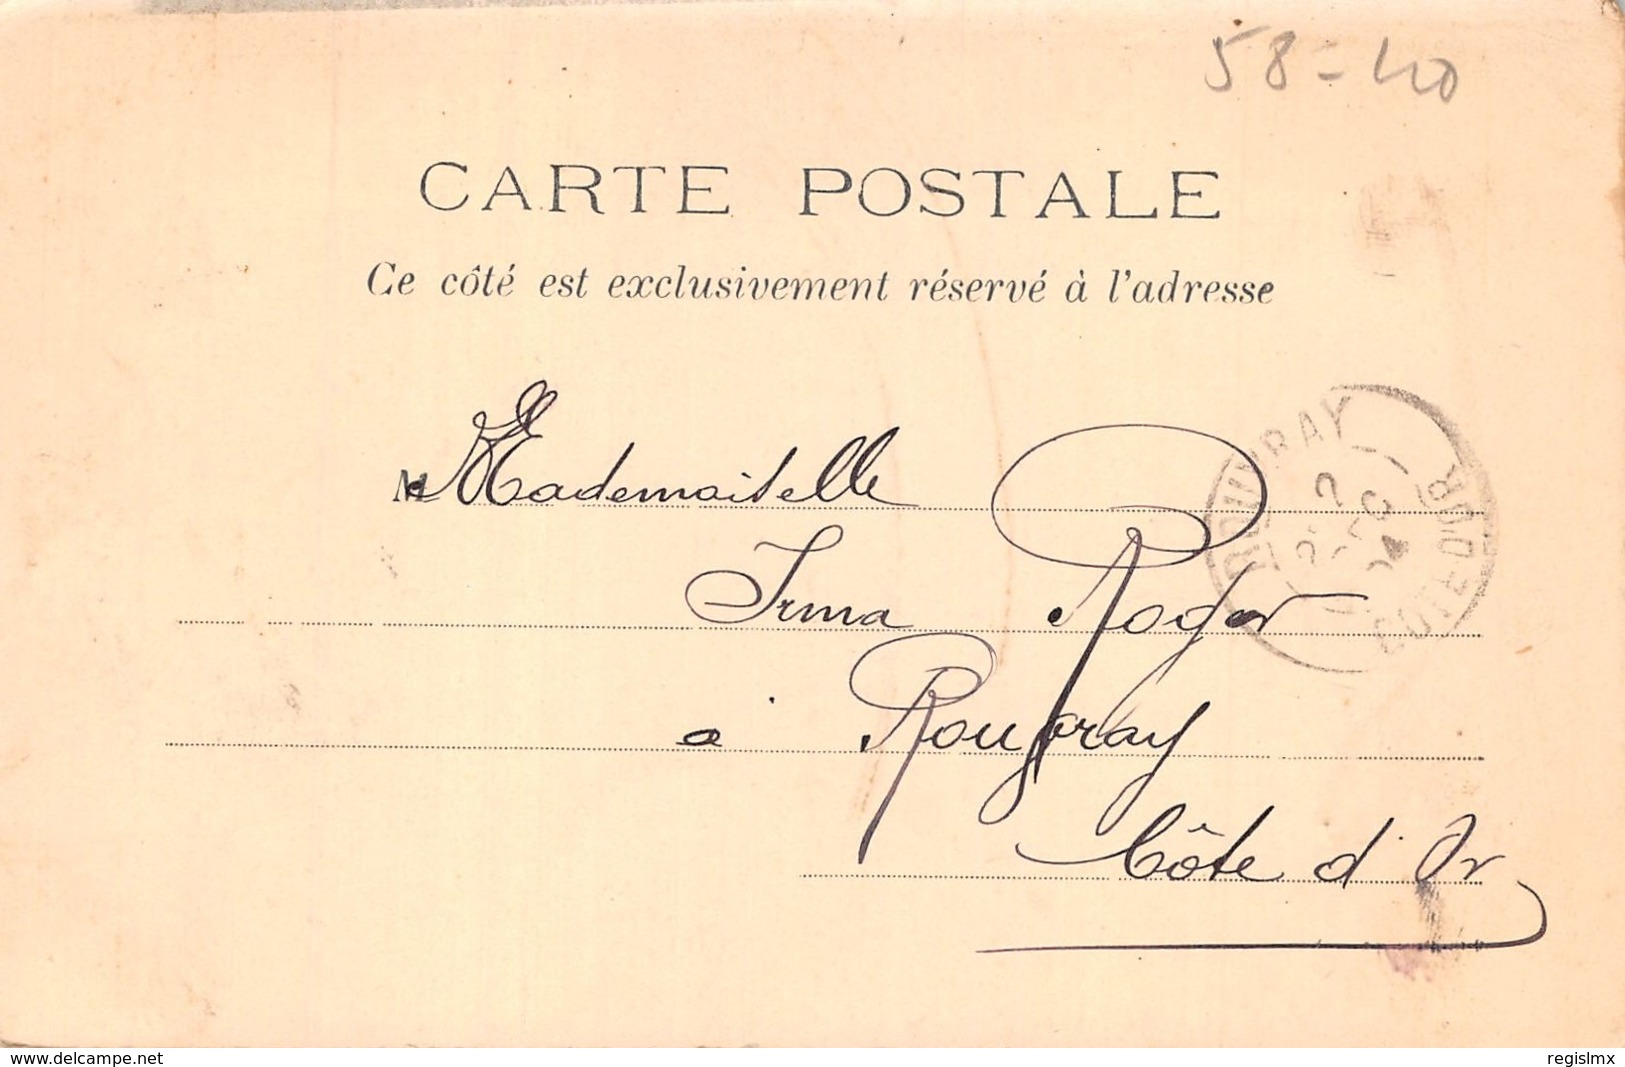 58-40
CARTE POSTALE
Ce côté est exclusivement réservé à l'adresse
M Mademoiselle
Irma Roger
à Rouvray
Côte d'Or
ROUVRAY
COTE-D'OR
www.delcampe.net
regislmx